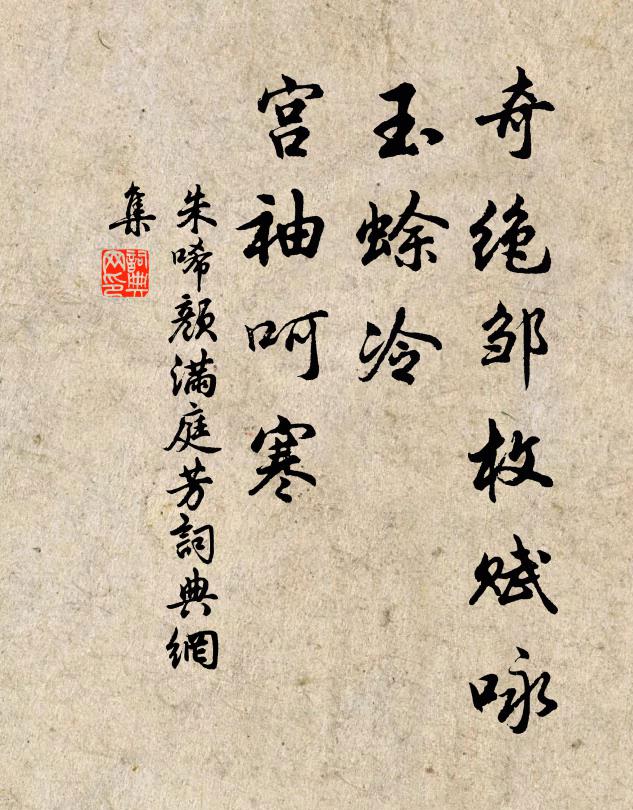 奇绝邹枚赋咏
玉蜍冷
宫袖呵寒
朱唏颜满庭芳詞典網
集
詞典
网印